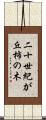 二十世紀が丘柿の木